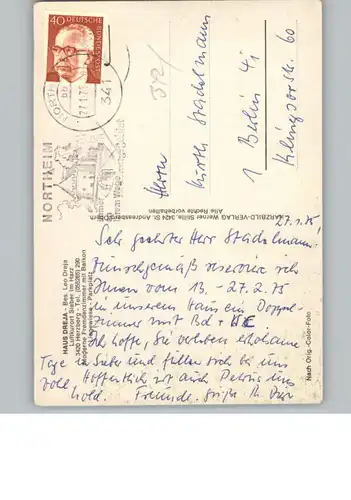 40
DEUTSCHE
BUNDESPOST
27.1.75
341
NORTHEIM
342/
Herrn
Kurth Stadelmann
1 Berlin 41
Klingsorstr. 60
27.1.75
Sehr geehrter Herr Stadelmann!
Wunschgemäß reserviere ich
Ihnen vom 13. - 27.2.75
in unserem Haus ein Doppel-
zimmer mit Bd + WC
Ich hoffe, Sie verleben erholsame
Tage in Sieber und fühlen sich bei uns
wohl. Hoffentlich ist auch Petrus uns
hold. Freundl. Grüße Ihr
HAUS DREJA - Bes. Leo Dreja
Luftkurort Sieber im Harz
3420 Herzberg - Tel. (05585) 290
Moderne Fremdenzimmer mit Balkon
Liegewiese - Parkplatz
HARZBILD-VERLAG Werner Stille, 3424 St. Andreasberg/Oberharz
Alle Rechte vorbehalten
Nach Orig.-Color-Foto